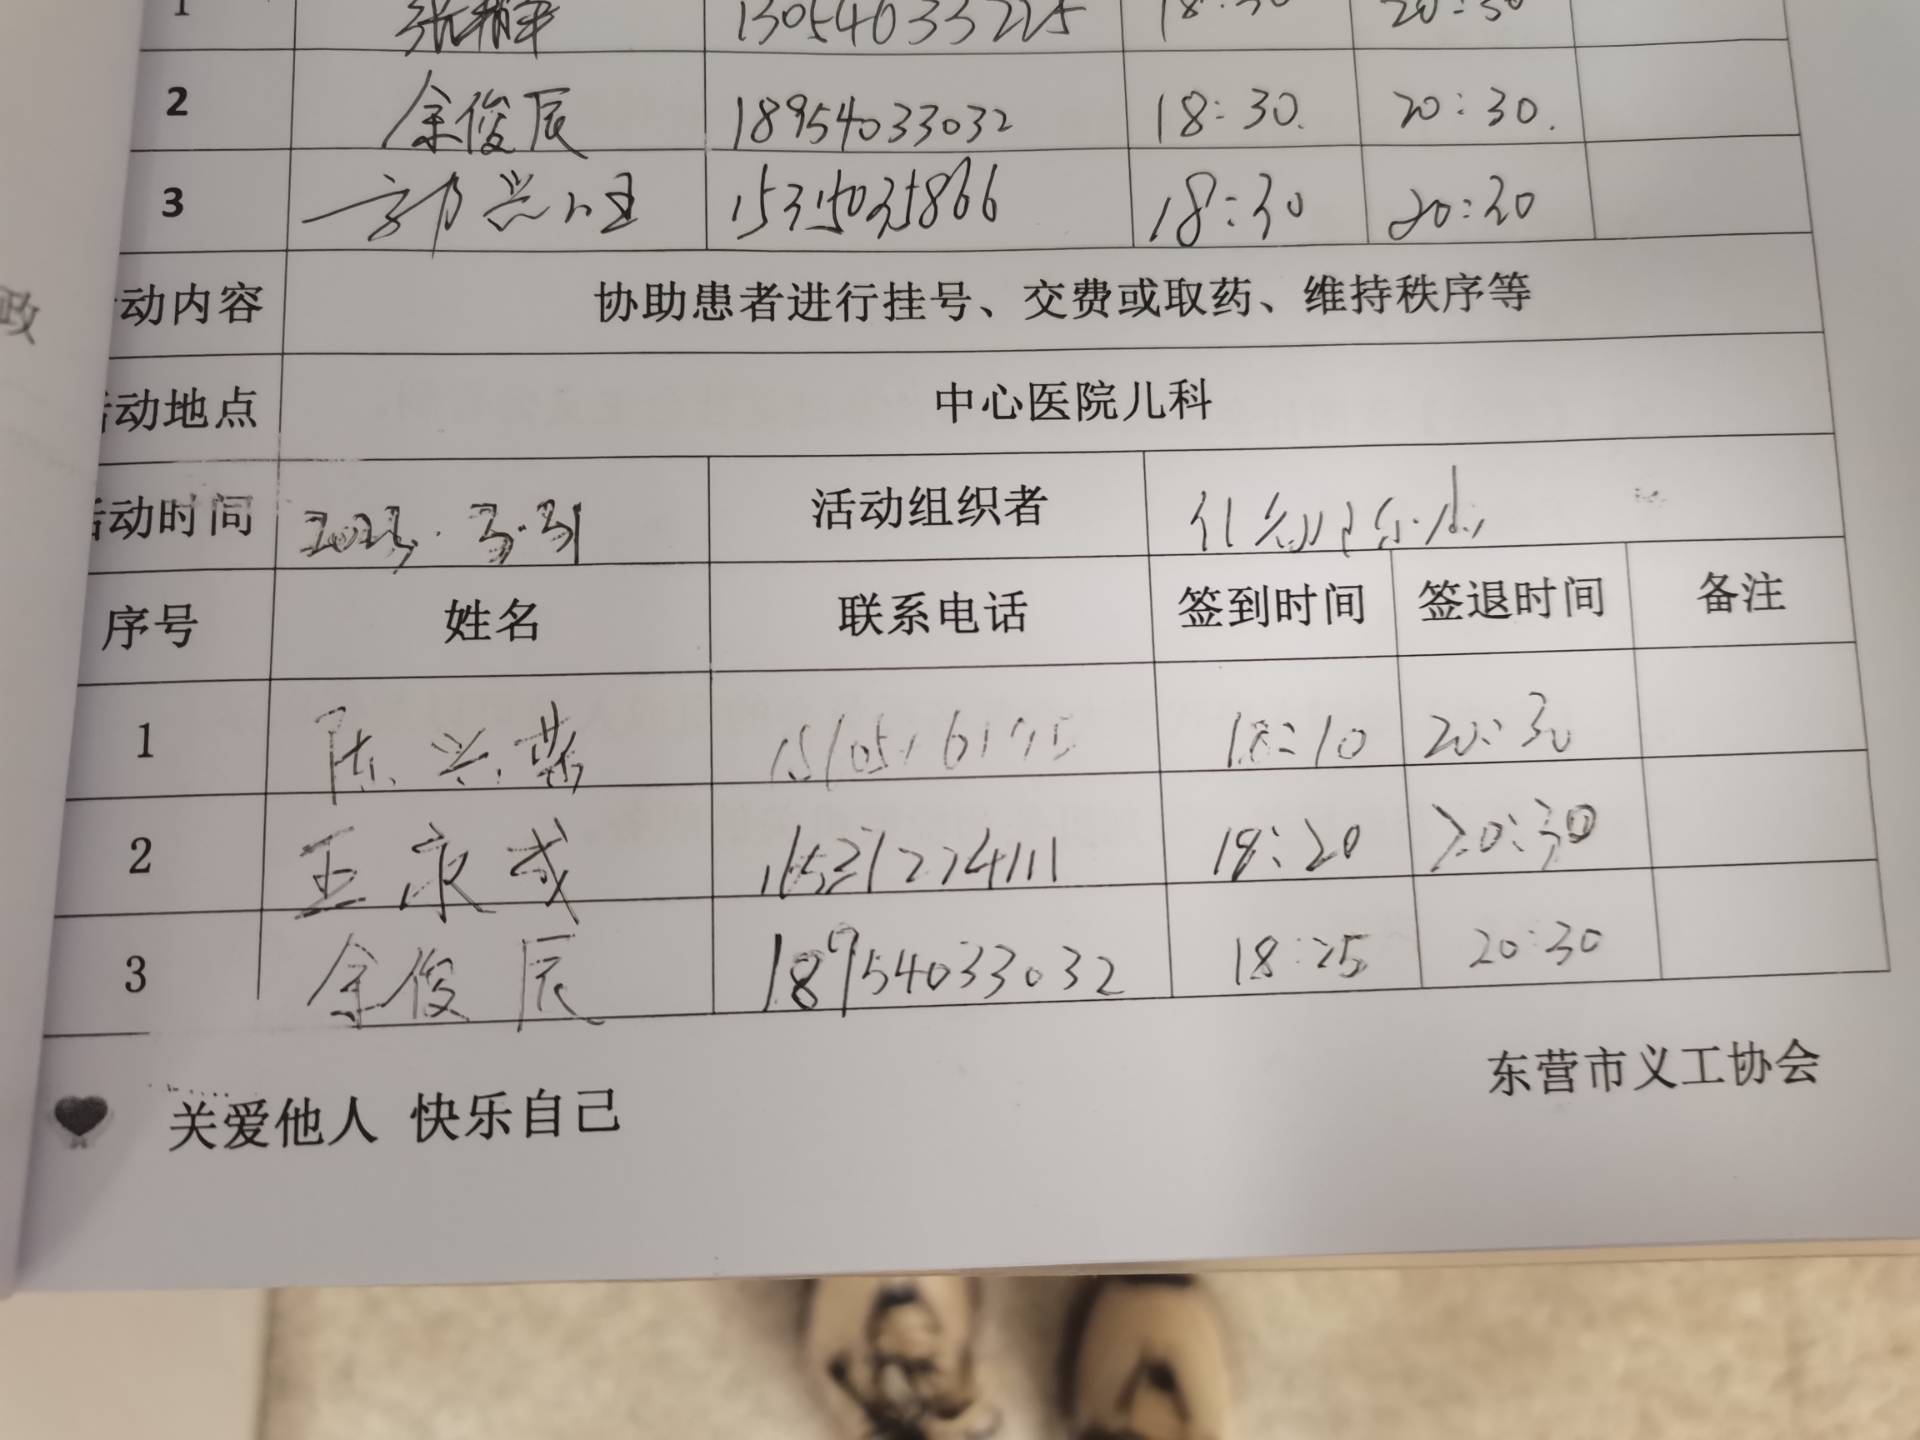 1 13054033225 18:30 20:30
2 余俊辰 18954033032 18:30. 20:30.
3 15315035866 18:30 20:30
动内容 协助患者进行挂号、交费或取药、维持秩序等
活动地点 中心医院儿科
活动时间 2023.3.31 活动组织者
序号 姓名 联系电话 签到时间 签退时间 备注
1 陈兴燕 18:10 20:30
2 王永成 18:20 20:30
3 余俊辰 18954033032 18:25 20:30
关爱他人 快乐自己
东营市义工协会
政